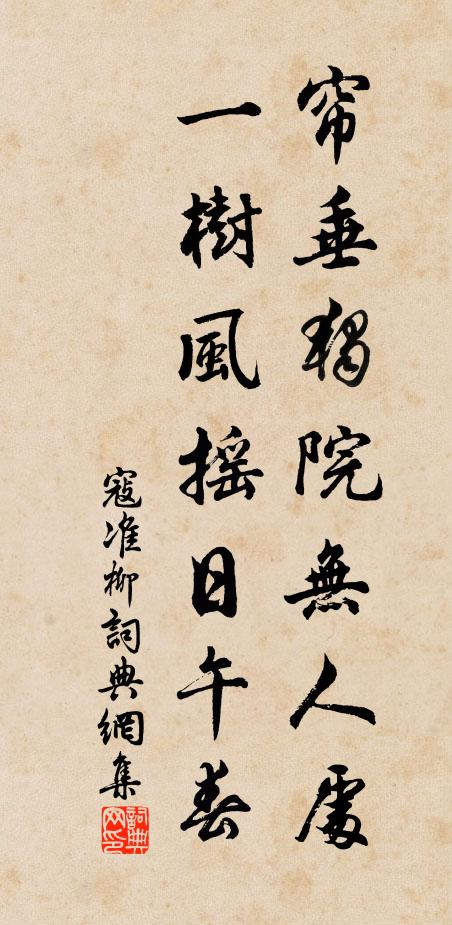 帘垂獨院無人處
一樹風搖日午春
寇准柳詞典網集
詞典網印